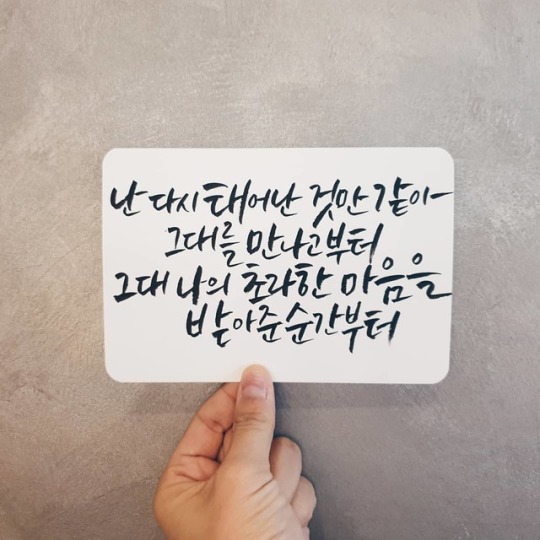 난 다시 태어난 것만 같아
그대를 만나고부터
그대 나의 초라한 마음을
받아준 순간부터